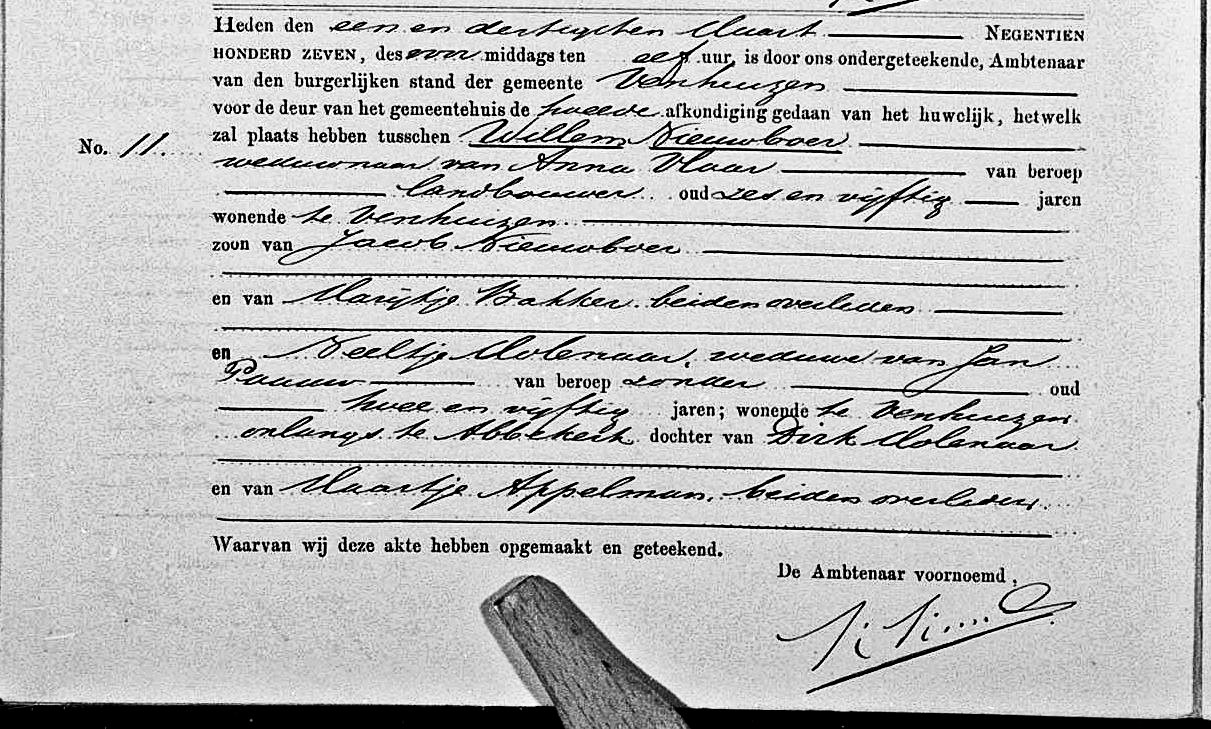 Heden den een en dertigsten Maart NEGENTIEN
HONDERD ZEVEN, des voor middags ten elf uur, is door ons ondergeteekende, Ambtenaar
van den burgerlijken stand der gemeente Venhuizen
voor de deur van het gemeentehuis de tweede afkondiging gedaan van het huwelijk, hetwelk
No. 11. zal plaats hebben tusschen Willem Nieuwboer
weduwnaar van Anna Vlaar van beroep
landbouwer oud zes en vijftig jaren
wonende te Venhuizen
zoon van Jacob Nieuwboer
en van Marijtje Bakker beiden overleden
en Neeltje Molenaar, weduwe van Jan
Paauw van beroep zonder oud
twee en vijftig jaren; wonende te Venhuizen
onlangs te Abbekerk dochter van Dirk Molenaar
en van Maartje Appelman, beiden overleden.
Waarvan wij deze akte hebben opgemaakt en geteekend.
De Ambtenaar voornoemd,